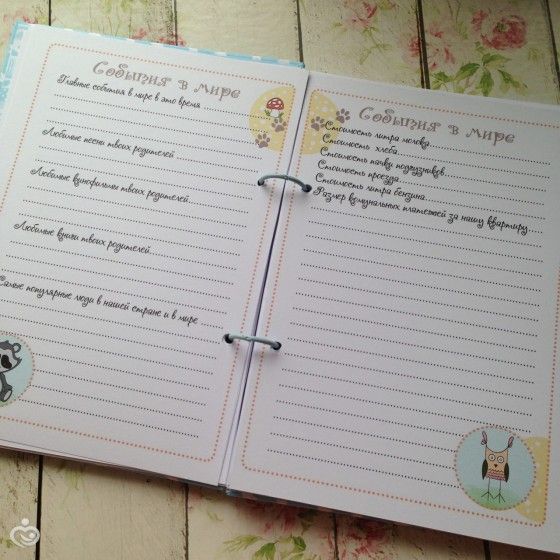 События в мире
Главные события в мире в это время
Любимые песни твоих родителей
Любимые кинофильмы твоих родителей
Любимые книги твоих родителей
Самые популярные люди в нашей стране и в мире
События в мире
Стоимость литра молока
Стоимость хлеба
Стоимость пачки подгузников
Стоимость проезда
Стоимость литра бензина
Размер комунальных платежей за нашу квартиру